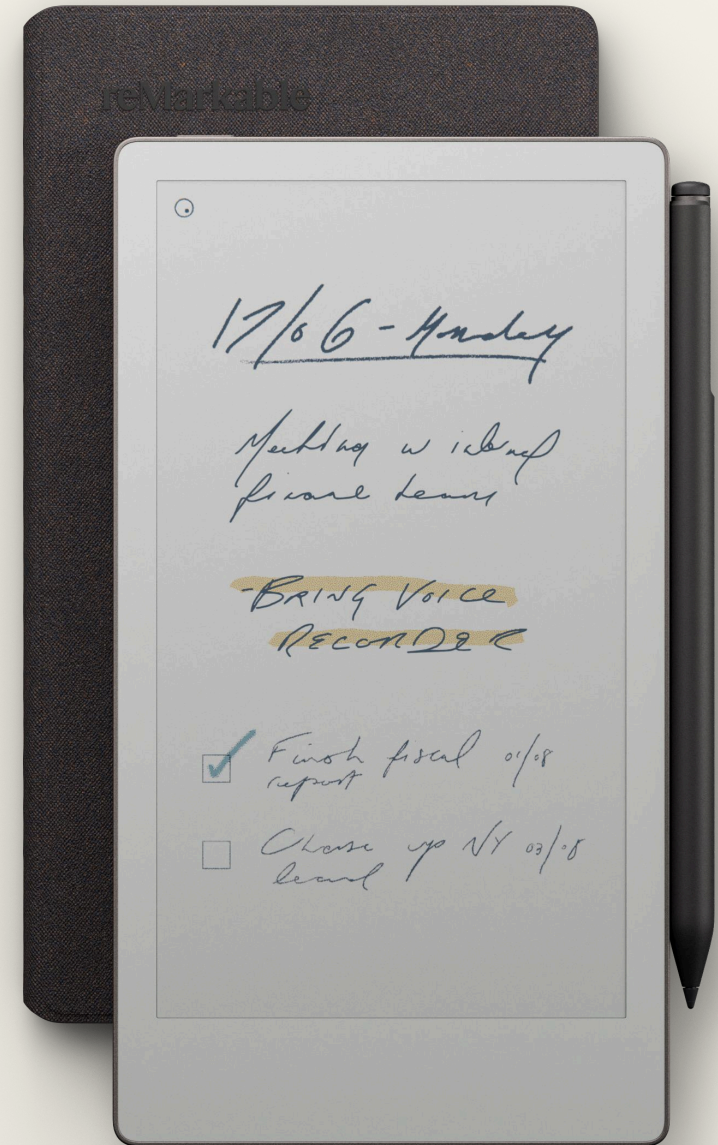 reMarkable
17/06 - Monday
Meeting w internal
finance team
-BRING VOICE
RECORDER
Finish fiscal 01/08
report
Chase up NY 03/08